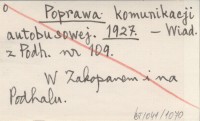 Poprawa komunikacji
autobusowej. 1927. — Wiad.
z Podh. nr 109.
W Zakopanem i na
Podhalu.